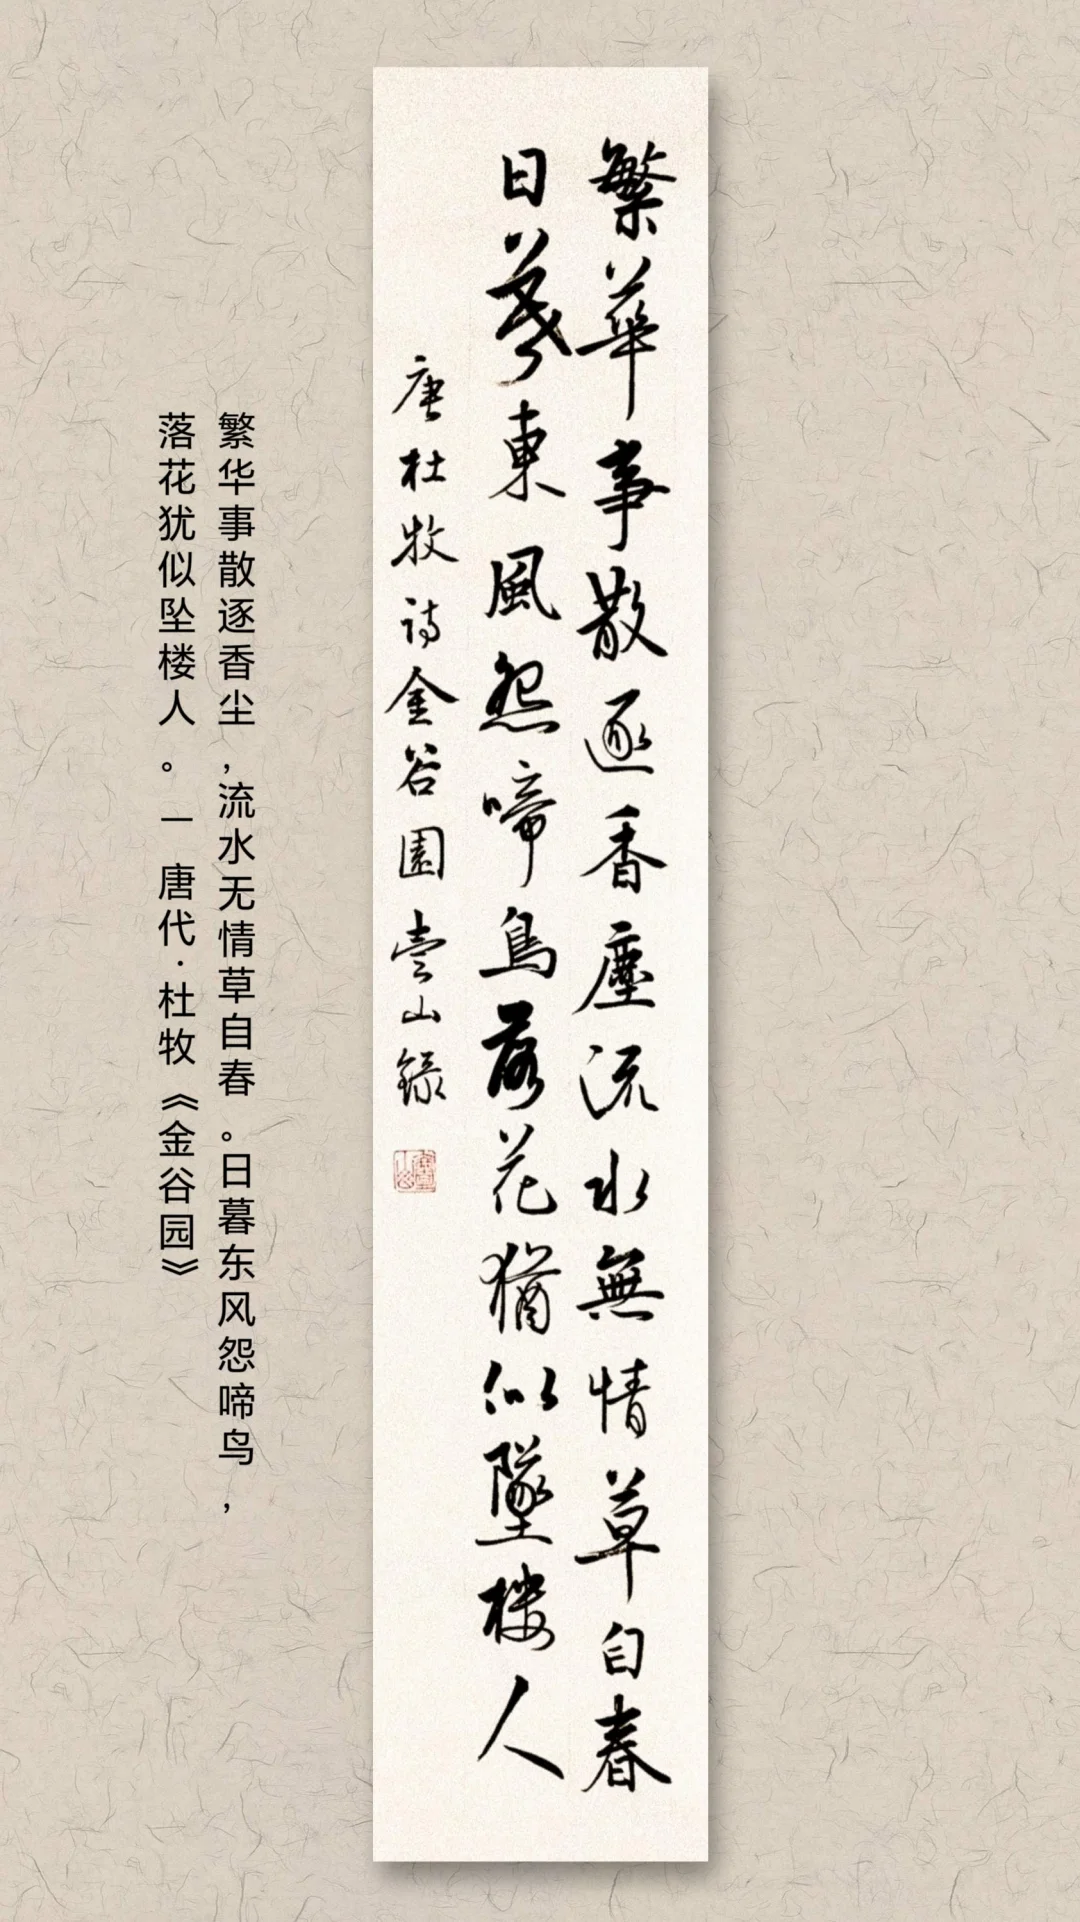 繁華事散逐香塵流水無情草自春
日暮東風怨啼鳥落花猶似墜樓人
唐杜牧詩金谷園壹山錄
繁华事散逐香尘,流水无情草自春。日暮东风怨啼鸟,
落花犹似坠楼人。一 唐代·杜牧《金谷园》